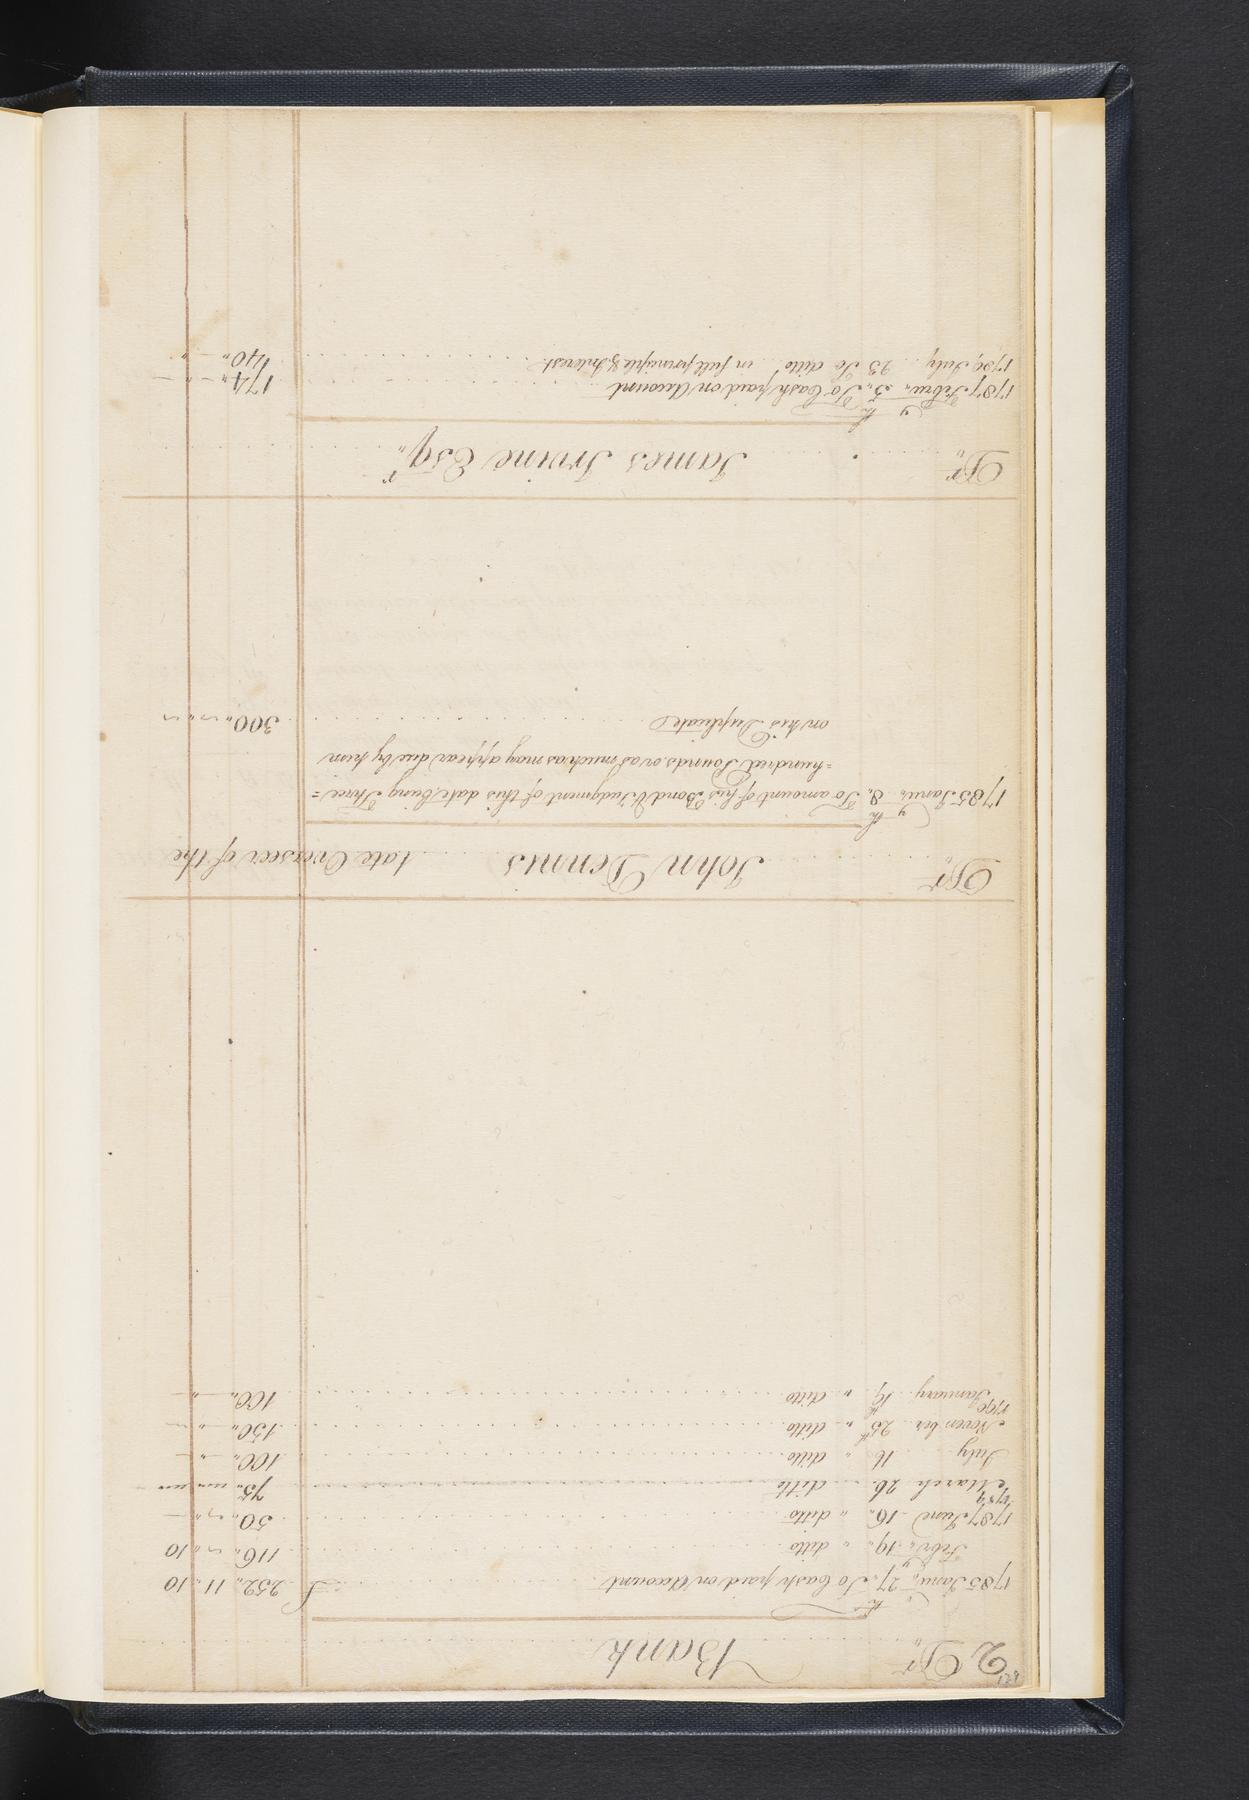 129
2 Dr.. Bank
1785 Janu.y 27.th To Cash paid on Account £ 252.. 11.. 10
Febr.y 19.. " ditto 116.. ~ .. 10
1787 June 16.. " ditto 50.. ~ .. ~
1789
March 26. ditto 75
July 16 " ditto 100.. — .. —
November 25th " ditto 150.. — .. —
1790
January 19 " ditto 100.. — .. —
Dr.. John Dennis late Overseer of the
1785 Janu.y 8.th To amount of his Bond & Judgment of this date being Three=
=hundred Pounds or as much as may appear due by him
on his Duplicates 300.. ~ .. ~
Dr.. James Irvine Esq.r
1787 Febru.y 3.th To Cash paid on Account 174.. — .. —
July 23 To ditto in full principle & Interest 140.. — .. "